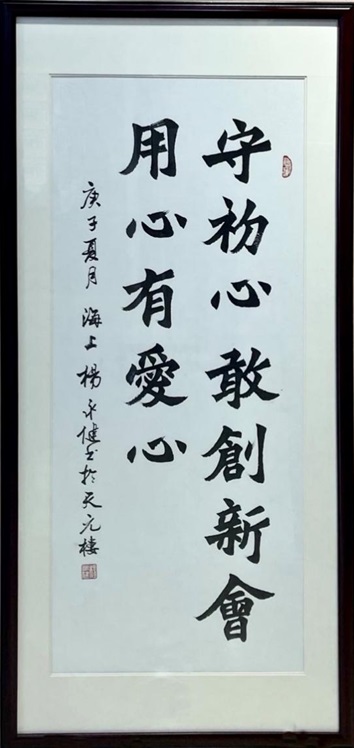 守初心敢創新會
用心有愛心
庚子夏月 海上楊永健书於天元楼